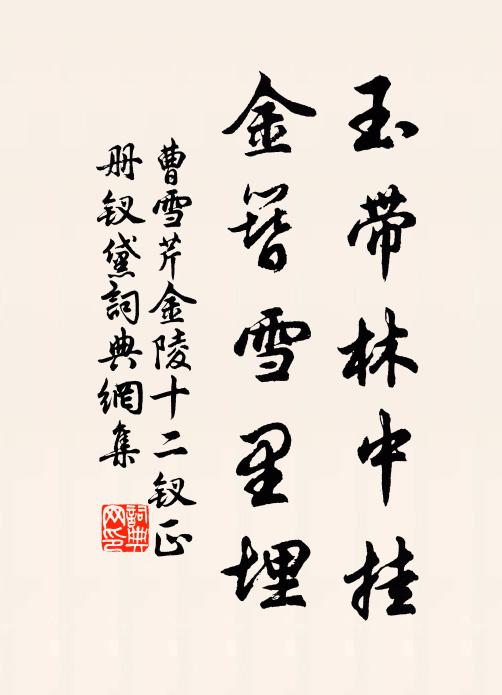 玉带林中挂
金簪雪里埋
曹雪芹金陵十二钗正
册钗黛詞典網集
詞典网印